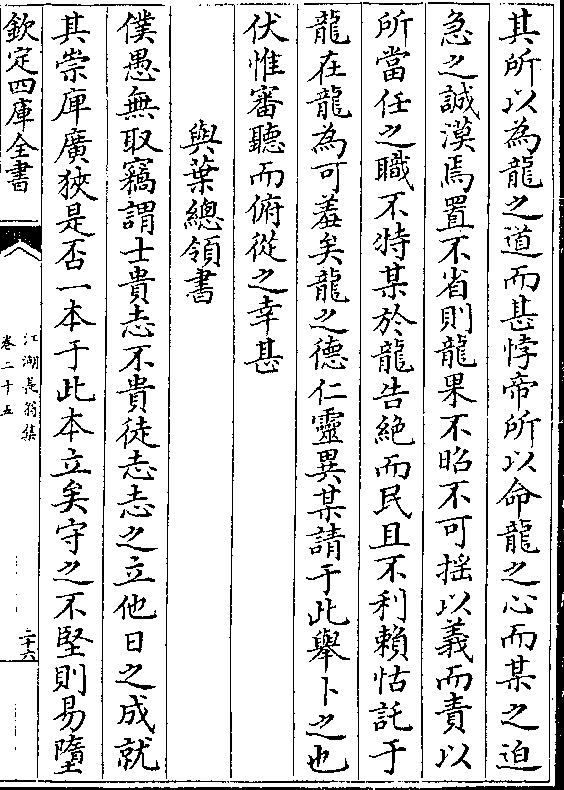 其所以為龍之道而甚悖帝所以命龍之心而某之迫
急之誠漠焉置不省則龍果不昭不可揺以義而責以
所當任之職不特某於龍告絶而民且不利賴怙託于
龍在龍為可羞矣龍之德仁靈異某請于此舉卜之也
伏惟審聽而俯從之幸甚
與葉總領書
僕愚無取竊謂士貴志不貴徒志志之立他日之成就
其崇庳廣狹是否一本于此本立矣守之不堅則易墮
欽定四庫全書
江湖長翁集
卷二十五
二十六